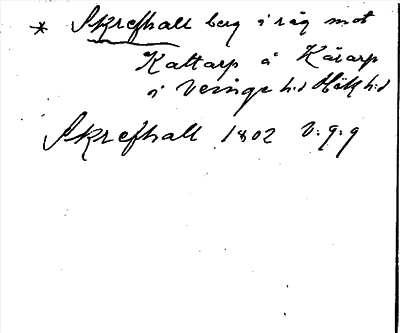 * Skrefhall berg i råg mot
Kattarp å Kärarp
i Veinge hd Hök hd
Skrefhall 1802 v:g:g